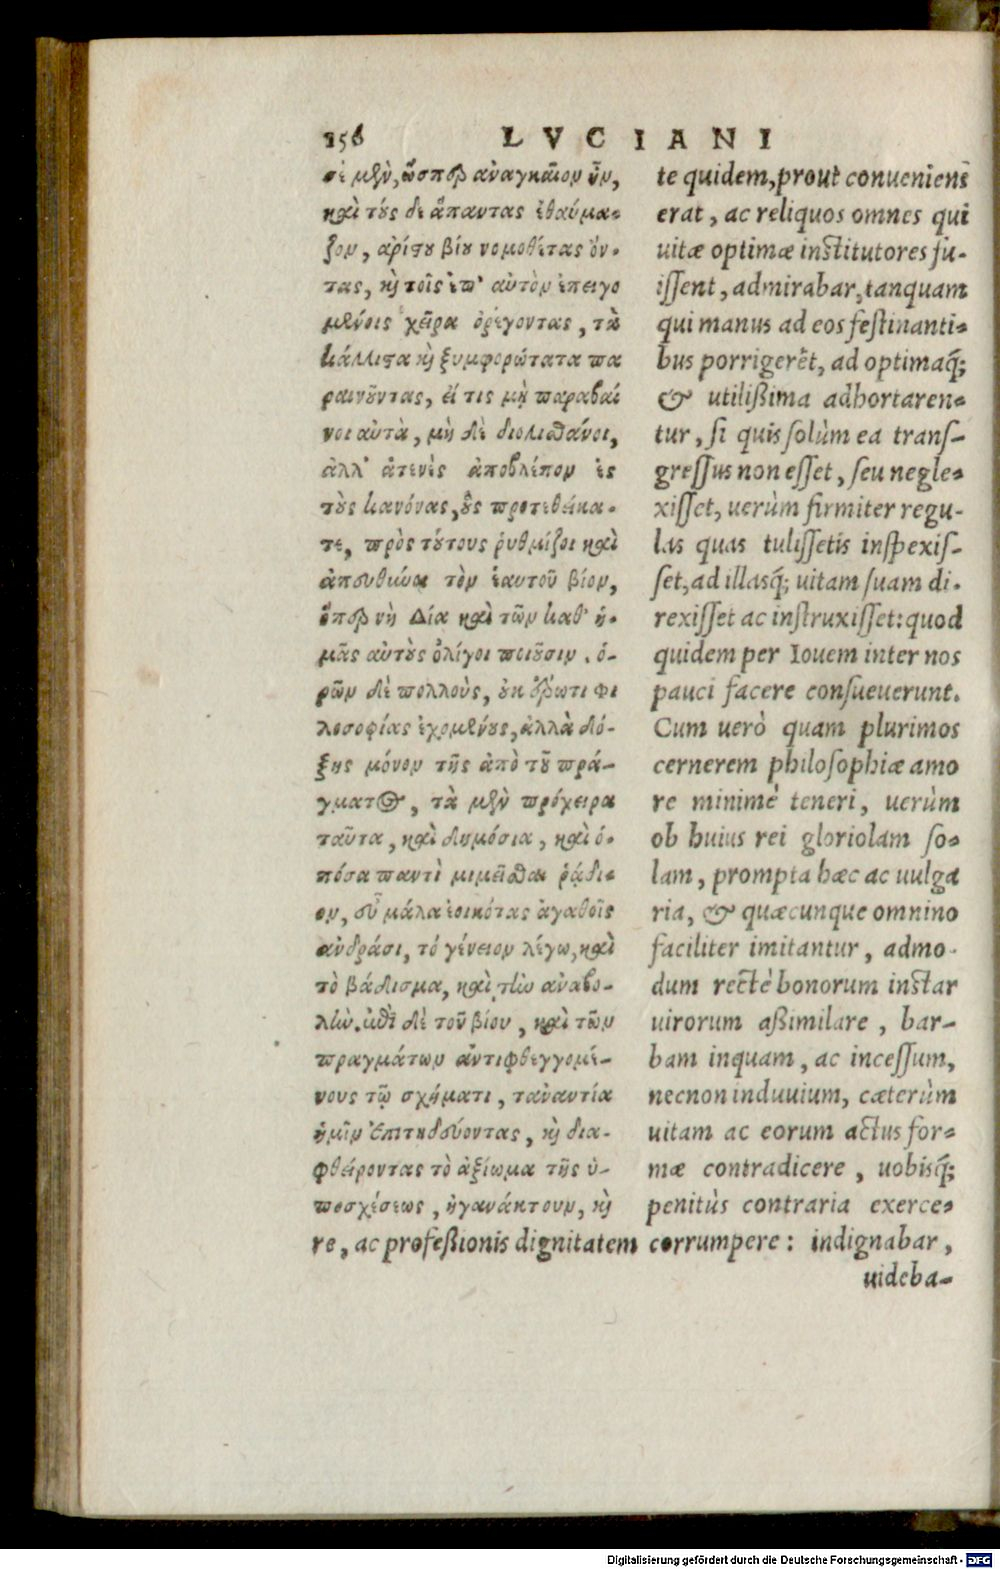 156 LVCIANI
σὲ μὲν, ὥσπερ ἀναγκαῖον ἦν,
καὶ τούς δε ἅπαντας ἐθαύμα-
ζον, ἀρίστου βίου νομοθέτας ὄν-
τας, καὶ τοῖς ἐπ' αὐτὸν ἐπειγο
μένοις χεῖρα ὀρέγοντας, τὰ
κάλλιστα καὶ ξυμφορώτατα πα
ραινοῦντας, εἴ τις μὴ παραβαί
νοι αὐτὰ, μὴ δὲ διολισθάνοι,
ἀλλ' ἀτενὲς ἀποβλέπον ἐς
τοὺς κανόνας, οὓς προτεθείκα-
τε, πρὸς τούτους ῥυθμίζοι καὶ
ἀπευθύνοι τὸν ἑαυτοῦ βίον,
ὅπερ νὴ Δία καὶ τῶν καθ' ἡ-
μᾶς αὐτοὺς ὀλίγοι ποιοῦσιν. ὁ-
ρῶν δὲ πολλοὺς, οὐκ ἔρωτι φι
λοσοφίας ἐχομένους, ἀλλὰ δό-
ξης μόνον τῆς ἀπὸ τοῦ πρά-
γματος, τὰ μὲν πρόχειρα
ταῦτα, καὶ δημόσια, καὶ ὁ-
πόσα παντὶ μιμεῖσθαι ῥᾴδι-
ον, εὖ μάλα ἐοικότας ἀγαθοῖς
ἀνδράσι, τό γένειον λέγω, καὶ
τὸ βάδισμα, καὶ τὴν ἀναβο-
λὴν. ἐπὶ δὲ τοῦ βίου, καὶ τῶν
πραγμάτων ἀντιφθεγγομέ-
νους τῷ σχήματι, τἀναντία
ἡμῖν ἐπιτηδεύοντας, καὶ δια-
φθείροντας τὸ ἀξίωμα τῆς ὑ-
ποσχέσεως, ἠγανάκτουν, καὶ
te quidem, prout conueniens
erat, ac reliquos omnes qui
uitæ optimæ institutores fu-
issent, admirabar, tanquam
qui manus ad eos festinanti-
bus porrigerẽt, ad optimaq́;
& utilißima adhortaren-
tur, si quis solùm ea trans-
gressus non esset, seu negle-
xisset, uerùm firmiter regu-
las quas tulissetis inspexis-
set, ad illasq́; uitam suam di-
rexisset ac instruxisset: quod
quidem per Iouem inter nos
pauci facere consueuerunt.
Cum uerò quam plurimos
cernerem philosophiæ amo
re minimè teneri, uerùm
ob huius rei gloriolam so-
lam, prompta hæc ac uulga
ria, & quæcunque omnino
faciliter imitantur, admo-
dum rectè bonorum instar
uirorum aßimilare, bar-
bam inquam, ac incessum,
necnon induuium, cæterùm
uitam ac eorum actus for-
mæ contradicere, uobisq́;
penitùs contraria exerce-
re, ac profeßionis dignitatem corrumpere: indignabar,
uideba-
Digitalisierung gefördert durch die Deutsche Forschungsgemeinschaft - DFG